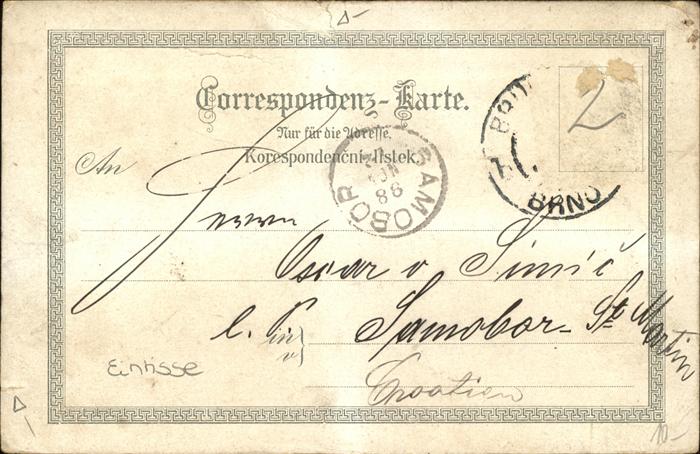 Correspondenz-Karte.
Nur für die Adresse.
Korespondenční lístek.
An
Herrn
Oscar v Simić
in Samobor - St Martin
Croatien
Eintisse
2
BRNO
SAMOBOR
98
10-